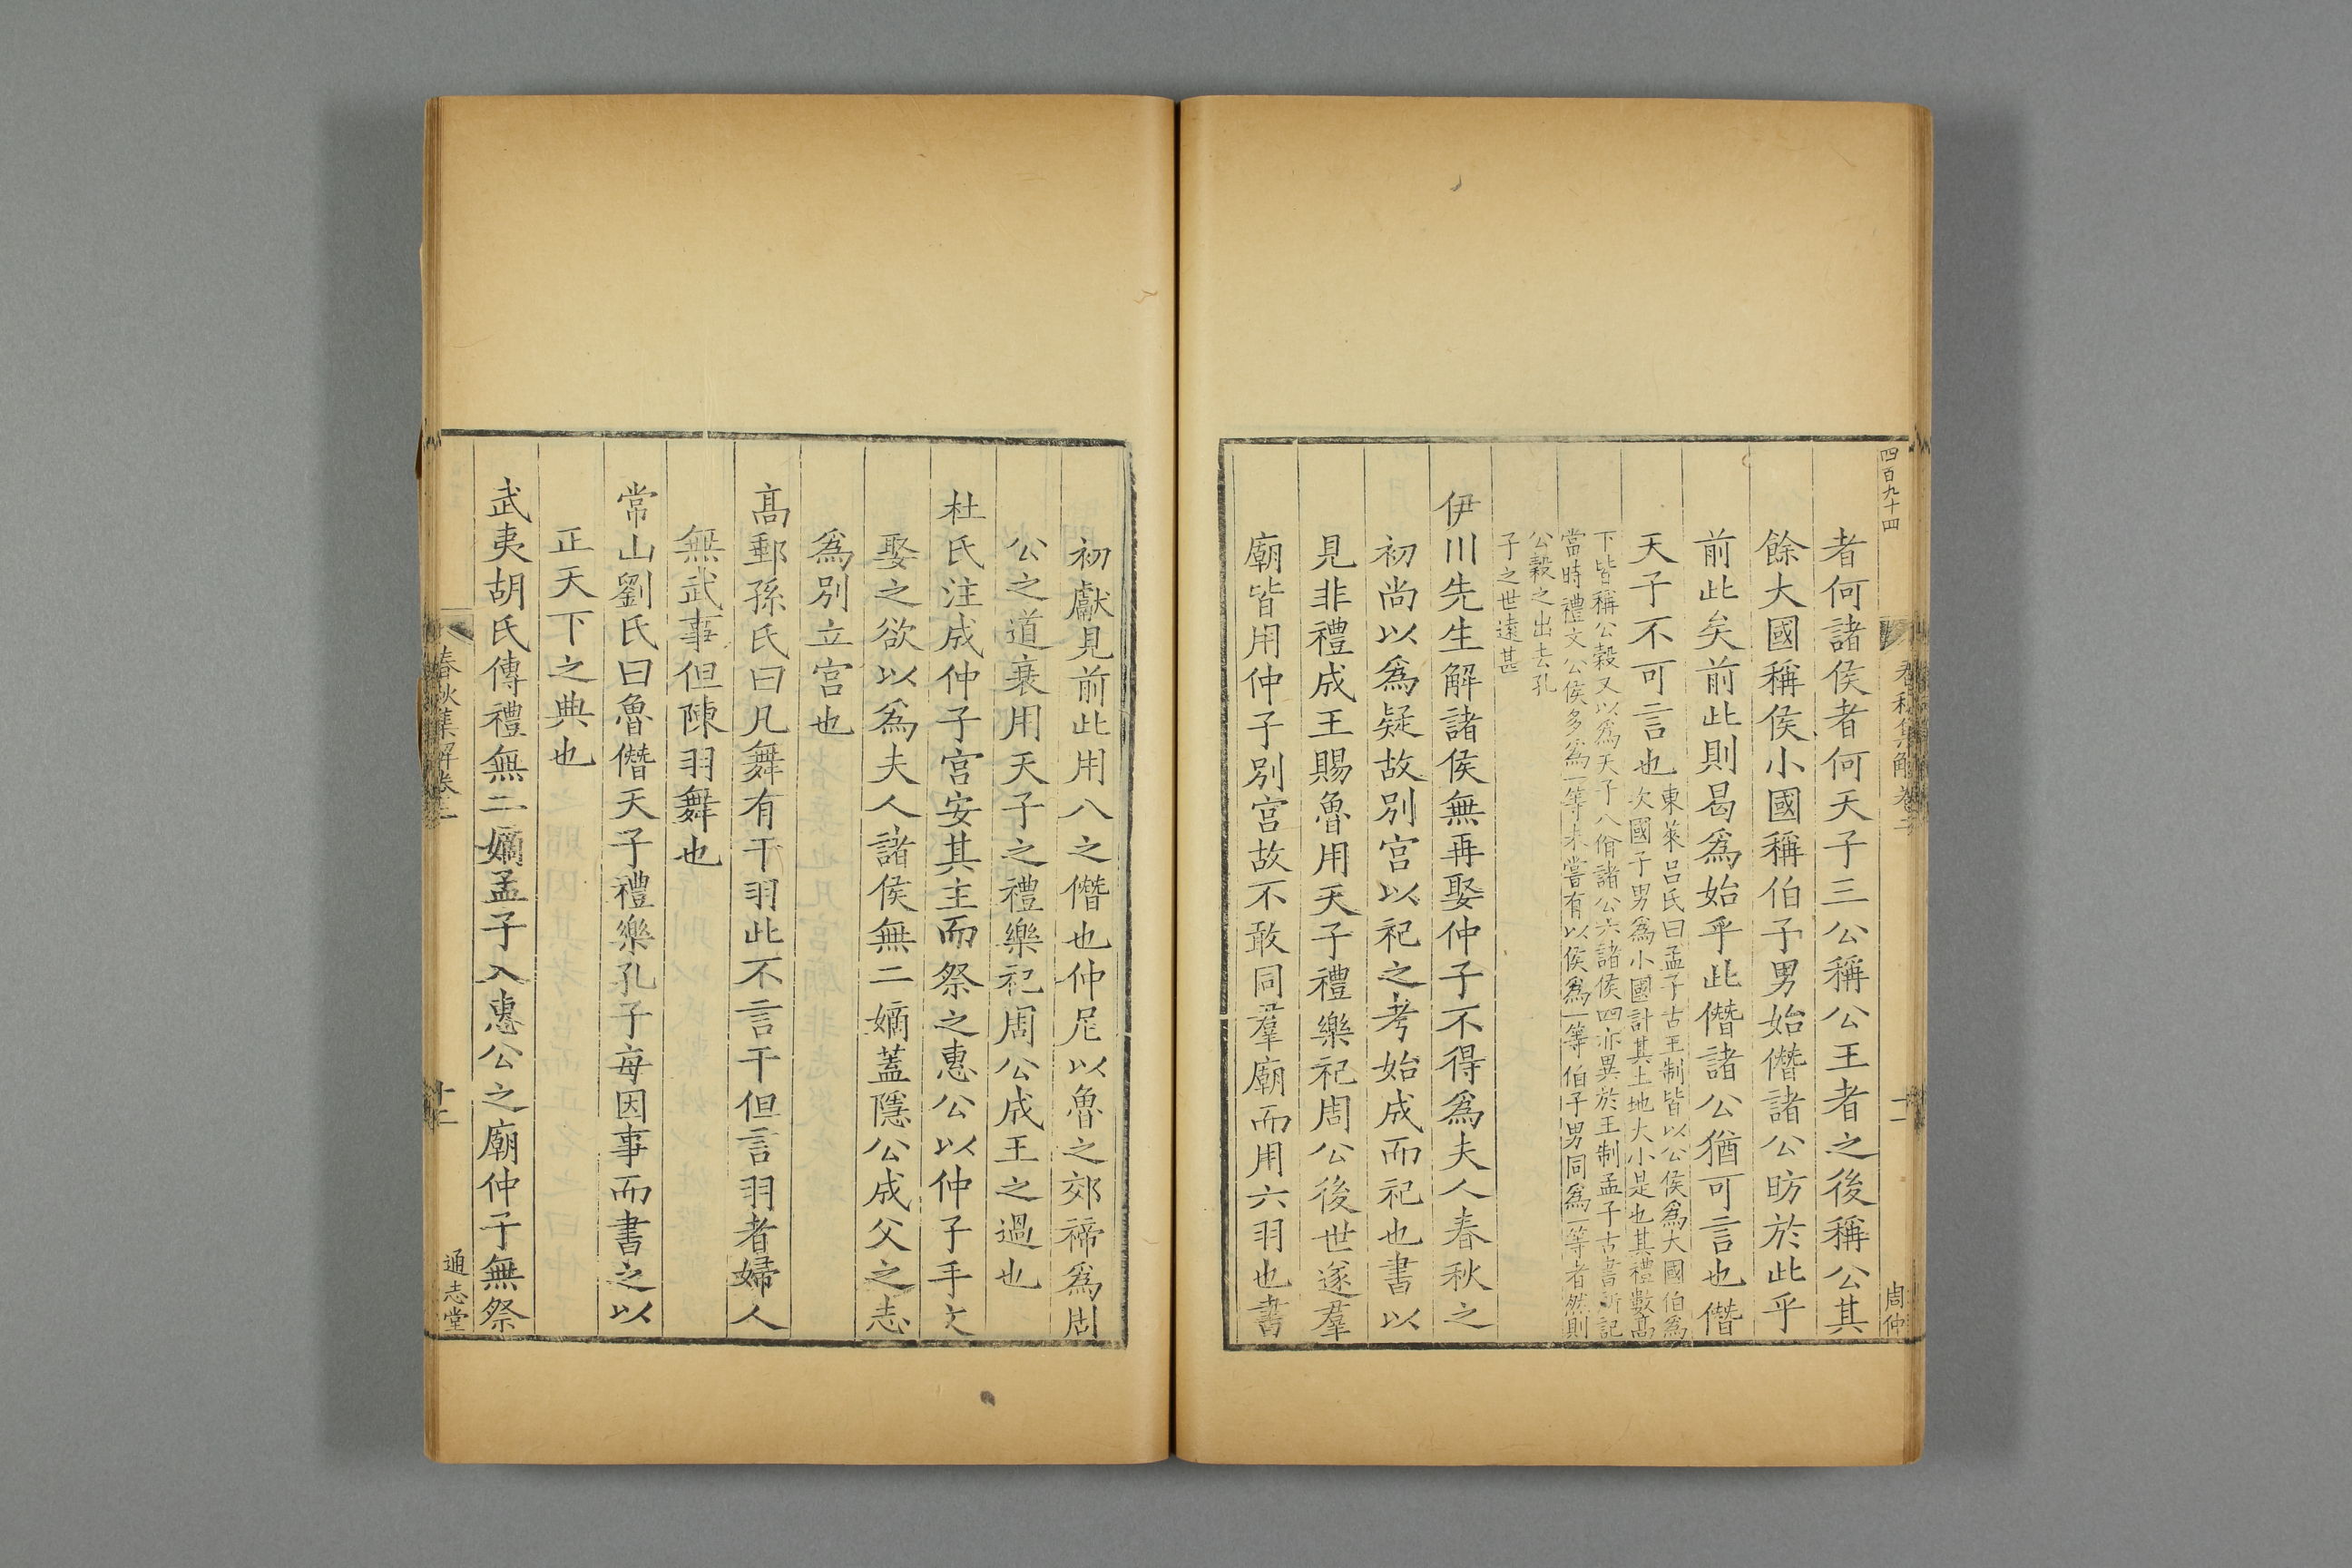 四百九十四
周仲
者何諸侯者何天子三公稱公王者之後稱公其
餘大國稱侯小國稱伯子男始僭諸公昉於此乎
前此矣前此則曷爲始乎此僭諸公猶可言也僭
天子不可言也
東萊吕氏曰孟子古王制皆以公侯爲大國伯爲
次國子男爲小國計其土地大小是也其禮數髙
下皆稱公榖又以爲天子八佾諸公六諸侯四亦異於王制孟子古書所記
當時禮文公侯多爲一等未嘗有以侯爲一等伯子男同爲一等者然則
公榖之出去孔
子之世遠甚
伊川先生解諸侯無再娶仲子不得爲夫人春秋之
初尚以爲疑故别宫以祀之考始成而祀也書以
見非禮成王賜魯用天子禮樂祀周公後世遂羣
廟皆用仲子别宫故不敢同羣廟而用六羽也書
初獻見前此用八之僭也仲尼以魯之郊禘爲周
公之道衰用天子之禮樂祀周公成王之過也
杜氏注成仲子宫安其主而祭之惠公以仲子手文
娶之欲以爲夫人諸侯無二嫡蓋隱公成父之志
爲别立宫也
髙郵孫氏曰凡舞有干羽此不言干但言羽者婦人
無武事但陳羽舞也
常山劉氏曰魯僭天子禮樂孔子每因事而書之以
正天下之典也
武夷胡氏傳禮無二嫡孟子入惠公之廟仲子無祭
春秋集解卷二
十二
通志堂